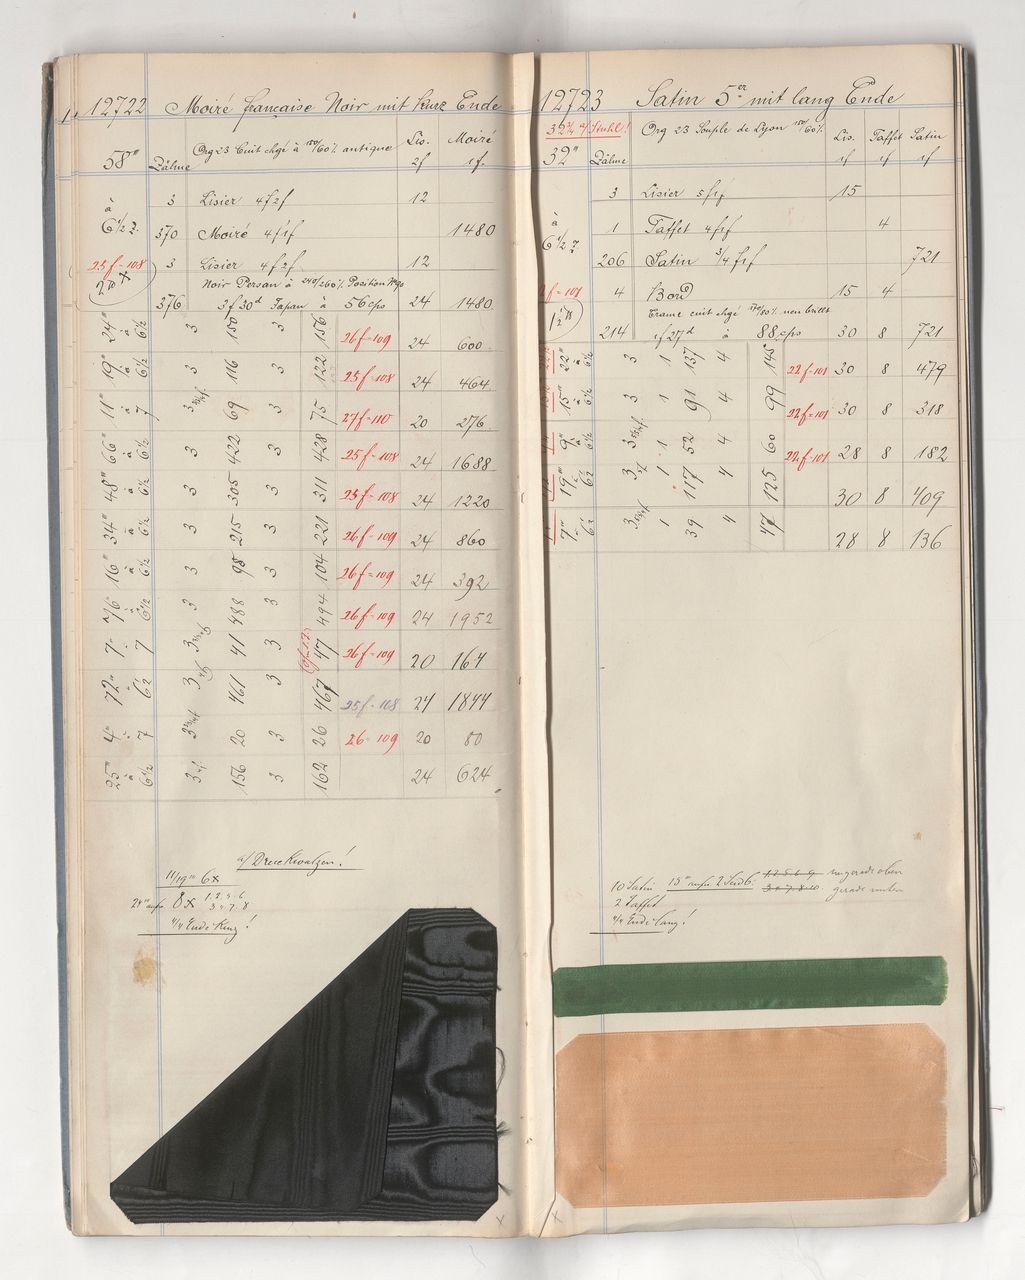 12722 Moiré française Noir mit kurz Ende
58''' Zähne Org 23 Cuit chgé à 150/60% antique Lis. 2f Moiré 1f.
3 Lisier 4f2f 12
à 6½ Z. 370 Moiré 4f1f 1480
25f=108 3 Lisier 4f2f 12
Noir Persan à 240/260%
376 3f 30d Japan à 56 cps 24 1480
24''' à 6½ 3 150 3 156 26f=109 24 600
19''' à 6½ 3 116 3 122 25f=108 24 464
11''' à 7 3 69 3 75 27f=110 20 276
66''' à 6½ 3 422 3 428 25f=108 24 1688
48''' à 6½ 3 305 3 311 25f=108 24 1220
34''' à 6½ 3 215 3 221 26f=109 24 860
16''' à 6½ 3 98 3 104 26f=109 24 392
76''' 6½ 3 488 494 26f=109 24 1952
7''' 7 3 41 3 47 26f=109 20 164
72''' 6½ 3 461 3 467 25f=108 24 1844
4''' 7 3 20 3 26 26=109 20 80
25''' à 6½ 3 156 3 162 24 624
a/ Druckwalzen!
11/19''' 6x
24''' 8x 1.2.5.6 3.4.7.8
4/4 Ende Kurz!
12723 Satin 5er mit lang Ende
32¾ a/ Stuhl!
32''' Zähne Org 23 Souple de Lyon 150/60% Lis. 1f Taffet 1f Satin 1f
3 Lisier 5f1f 15
à 6½ Z. 1 Taffet 4f1f 4
206 Satin ¾f1f 721
4 Bord 15 4
Trame cuit chgé
214 1f 27d à 88 cps 30 8 721
22''' à 6½ 3 1 137 4 145 22f=101 30 8 479
15''' à 6½ 3 1 91 4 99 22f=101 30 8 318
9''' à 6½ 3 1 52 4 60 22f=101 28 8 182
19''' à 6½ 3 1 117 4 125 30 8 409
7''' 6½ 3 1 39 4 47 28 8 136
10 Satin 15''' 1·2·5·6·9 ungerade oben
2 Taffet 3·4·7·8·10 gerade unten
4/4 Ende lang!